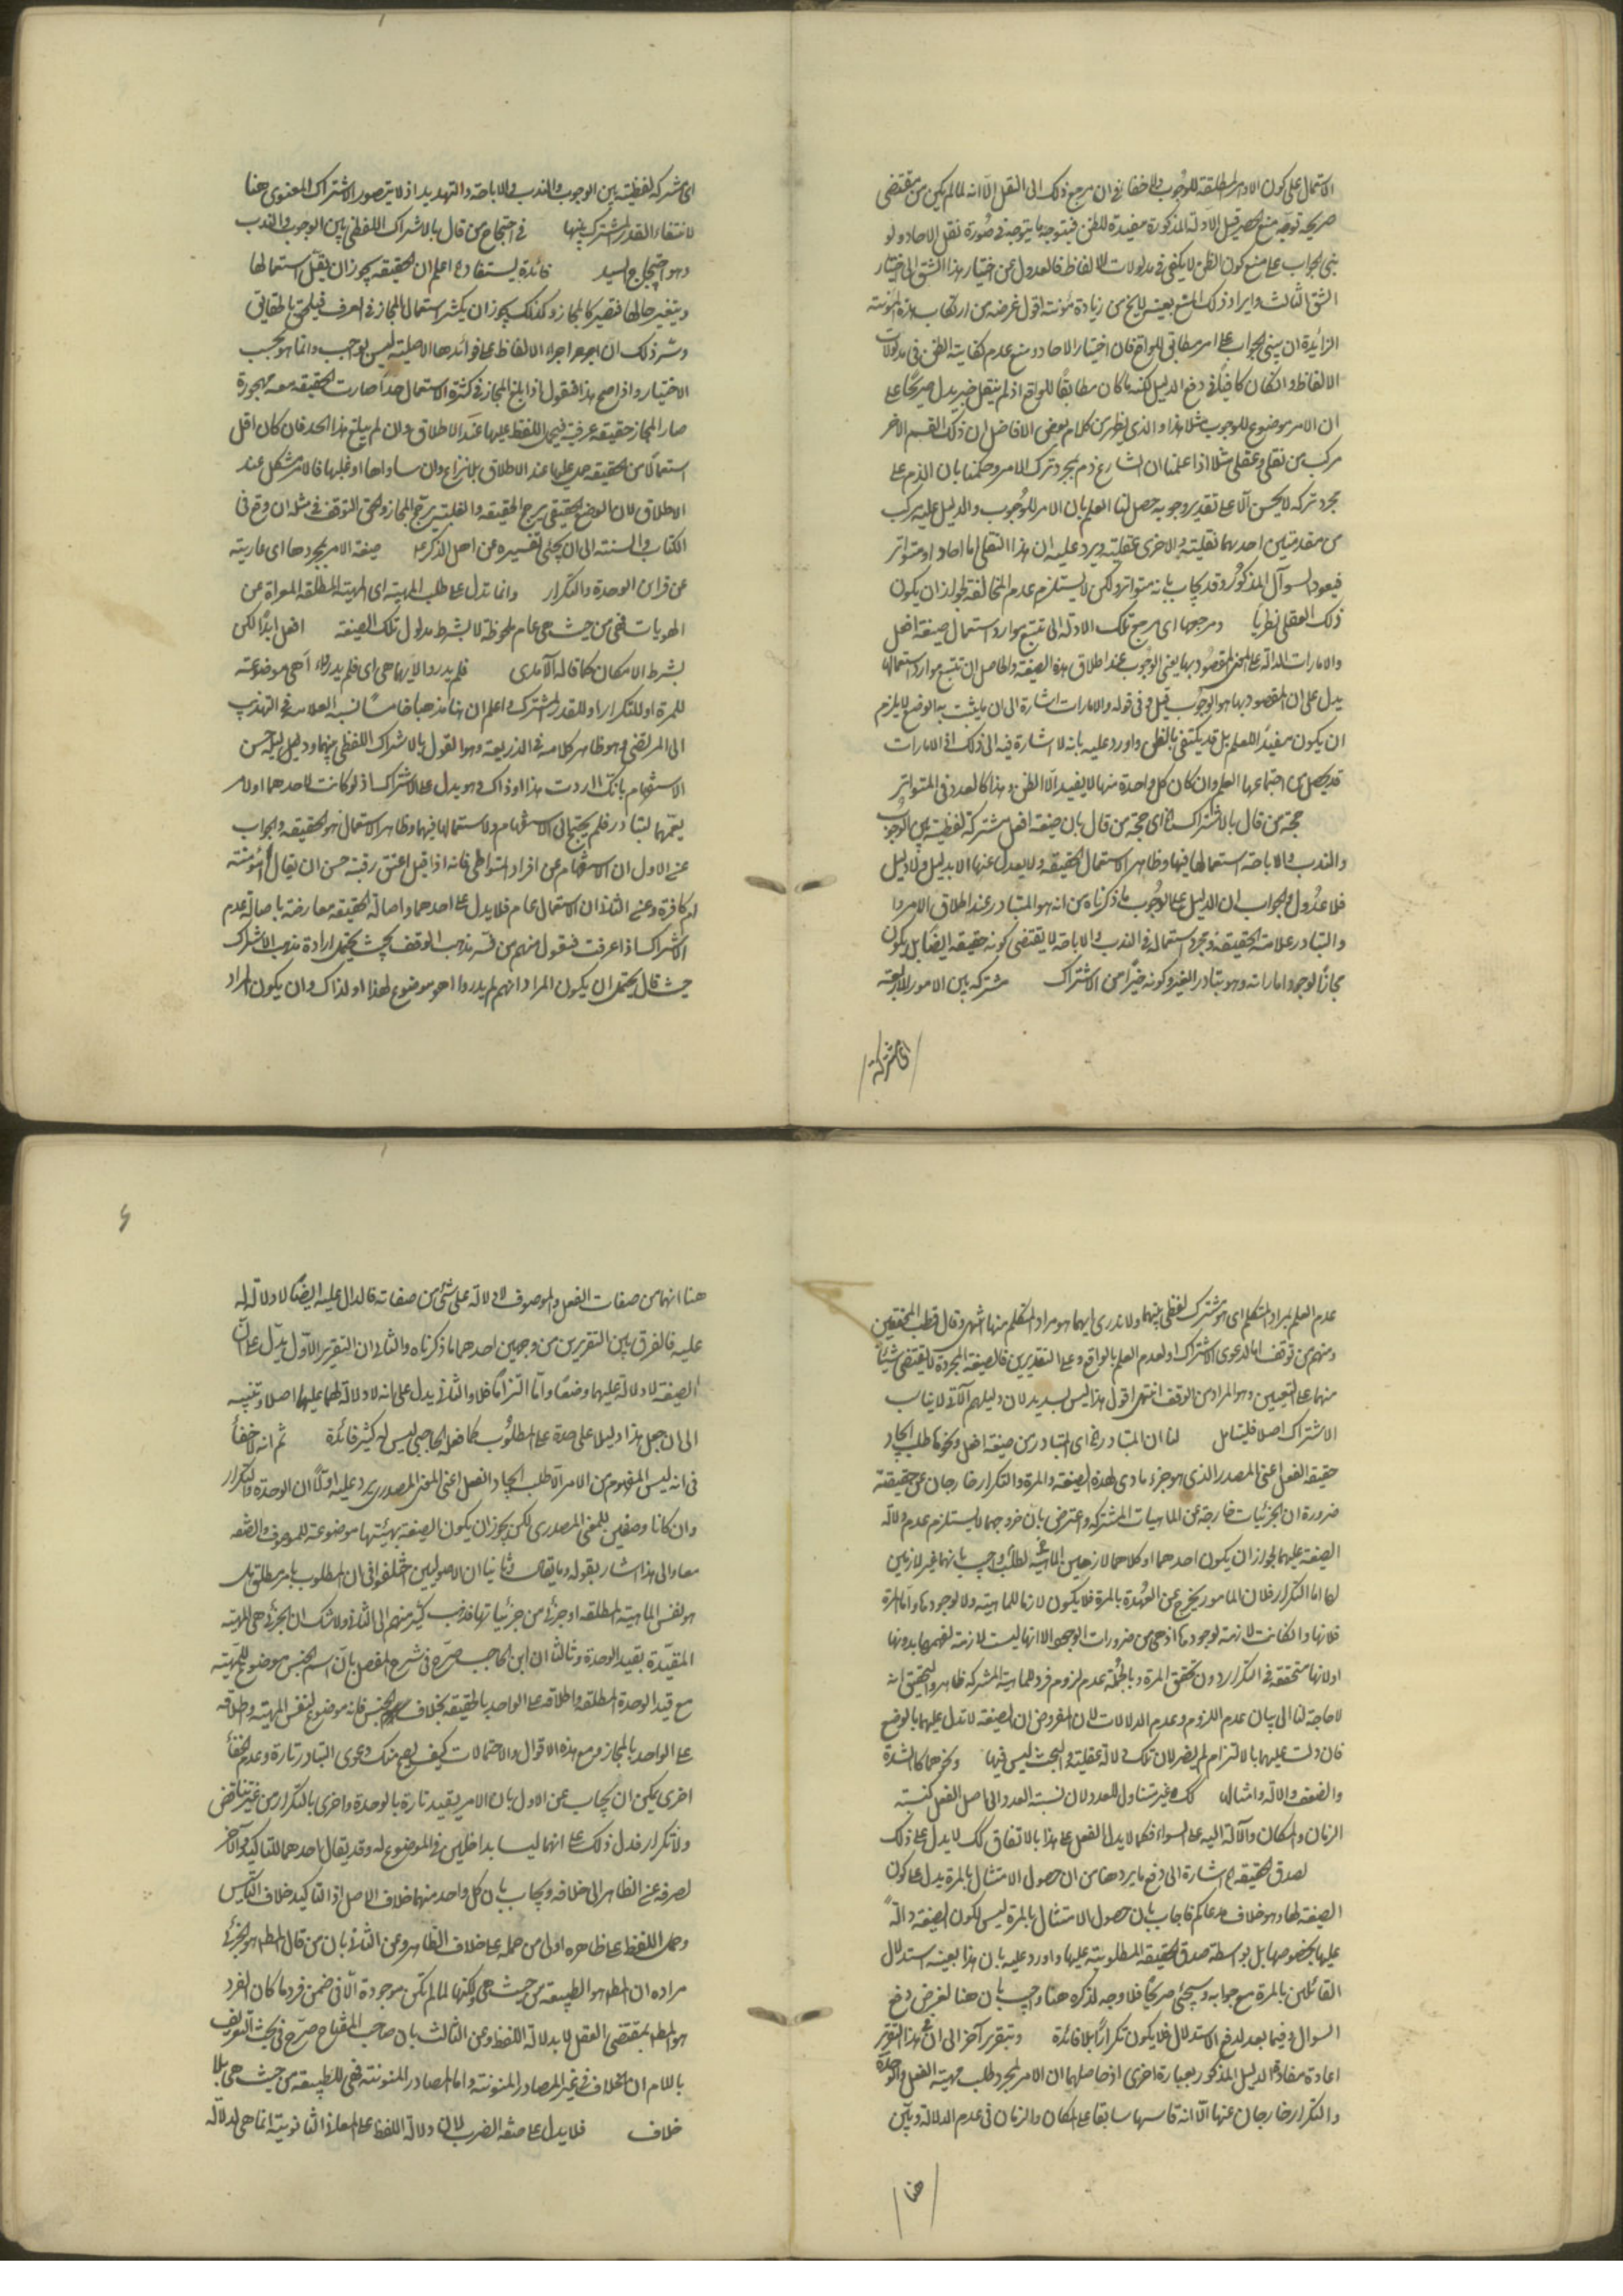 الاستعمال على كون الاوامر المطلقة للوجوب ولا خفاء في ان مرجع ذلك الى النقل الا انه لما لم يكن من مقتضى
صريحه توجه منع الحصر قيل الادلة المذكورة مفيدة للظن فيتوجه ما يتوجه في صورة نقل الاحاد ولو
بنى الجواب على منع كون الظن لا يكفي في مدلولات الالفاظ فالعدول عن اختيار هذا الشق الى اختيار
الشق الثالث وايراد ذلك المنع بعينه لا يخ من زيادة مؤنته اقول غرضه من ارتكاب هذه المؤنته
الزائدة ان يبنى الجواب على امر مطابق للواقع فان اختيار الاحاد ومنع عدم كفاية الظن في مدلولات
الالفاظ وان كان كافيا في دفع الدليل لكنه ما كان مطابقا للواقع اذ لم ينقل خبر يدل صريحا على
ان الامر موضوع للوجوب مثلا هذا والذي يظهر من كلام بعض الافاضل ان ذلك القسم الاخر
مركب من نقلي وعقلي مثلا اذا علمنا ان الشارع ذم بمجرد ترك الامر وحكمنا بان الذم على
مجرد تركه لا يحسن الا على تقدير وجوبه حصل لنا العلم بان الامر للوجوب والدليل عليه مركب
من مقدمتين احديهما نقلية والاخرى عقلية ويرد عليه ان هذا النقلي اما احاد او متواتر
فيعود السوآل المذكور وقد يجاب بانه متواتر ولكن لا يستلزم عدم المخالفة لجواز ان يكون
ذلك العقلي نظريا ومرجعها اى مرجع تلك الادلة الى تتبع موارد استعمال صيغة افعل
والامارات الدالة على المعنى المقصود بها يعنى الوجوب عند اطلاق هذه الصيغة والحاصل ان تتبع موارد استعمالها
يدل على ان المقصود بها هو الوجوب قيل وفى قوله والامارات اشارة الى ان ما يثبت به الوضع لا يلزم
ان يكون مفيدا للعلم بل قد يكتفى بالظن واورد عليه بانه لا اشارة فيه الى ذلك اذ الامارات
قد يحصل من اجتماعها العلم وان كان كل واحدة منها لا يفيد الا الظن وهذا كالعدد فى المتواتر
حجة من قال بالاشتراك اى حجة من قال بان صيغة افعل مشتركة لفظية بين الوجوب
والندب والاباحة استعمالها فيها وظاهر الاستعمال الحقيقة ولا يعدل عنها الا بدليل ولا دليل
فلا عدول والجواب ان الدليل على الوجوب ما ذكرناه من انه هو المتبادر عند اطلاق الامر
والتبادر علامة الحقيقة ومجرد استعماله فى الندب والاباحة لا يقتضى كونه حقيقة ايضا بل يكون
مجازا لوجود اماراته وهو تبادر الغير وكونه خيرا من الاشتراك مشتركه بين الامور الاربعة
اى مشتركة
اى مشتركه لفظية بين الوجوب والندب والاباحة والتهديد اذ لا يتصور الاشتراك المعنوى هنا
لانتفاء القدر المشترك بينها فى احتجاج من قال بالاشتراك اللفظى بين الوجوب والندب
وهو احتجاج السيد فائدة يستفاد اعلم ان الحقيقة يجوز ان يقل استعمالها
ويتغير حالها فتصير كالمجاز وكذلك يجوز ان يكثر استعمال المجاز فى العرف فيلحق بالحقايق
وسر ذلك ان اجراء الالفاظ على فوائدها الاصلية ليس بواجب وانما هو بحسب
الاختيار واذا صح هذا فنقول اذا بلغ المجاز فى كثرة الاستعمال حدا صارت الحقيقة معه مهجورة
صار المجاز حقيقة عرفية فيحمل اللفظ عليها عند الاطلاق وان لم يبلغ هذا الحد فان كان اقل
استعمالا من الحقيقة حمل عليها عند الاطلاق بلا نزاع وان ساواها او غلبها فالامر مشكل عند
الاطلاق لان الوضع الحقيقى يرجح الحقيقة والغلبة يرجح المجاز والحق التوقف فى مثله ان وقع فى
الكتاب والسنة الى ان يجئى تفسيره عن اهل الذكر ع صيغة الامر بمجردها اى عارية
عن قراين الوحدة والتكرار وانما تدل على طلب المهية اى المهية المطلقة المعراة عن
الهويات فهى من حيث هى عام ملحوظة لا بشرط مدلول تلك الصيغة افعل ابدا لكن
بشرط الامكان كما قاله الآمدى فلم يدروا لايهما هى اى فلم يدروا اهى موضوعة
للمرة او للتكرار او للقدر المشترك واعلم ان هنا مذهبا خامسا نسبه العلامه فى التهذيب
الى المرتضى وهو ظاهر كلامه فى الذريعة وهو القول بالاشتراك اللفظى بينهما ودليله حسن
الاستفهام بانك اردت هذا او ذاك وهو يدل على الاشتراك اذ لو كانت لاحدهما او لامر
يعمهما لتبادر فلم يحتج الى الاستفهام ولاستعمالها فيهما وظاهر الاستعمال هو الحقيقة والجواب
عن الاول ان الاستفهام عن افراد المتواطى فانه اذا قيل اعتق رقبة حسن ان يقال أمؤمنة
ام كافرة وعن الثانى ان الاستعمال عام فلا يدل على احدهما واصالة الحقيقة معارضة باصالة عدم
الاشتراك اذا عرفت فنقول منهم من فسر مذهب الوقف بحيث يحتمل ارادة مذهب الاشتراك
حيث قال يحتمل ان يكون المراد انهم لم يدروا اهو موضوع لهذا او لذاك وان يكون المراد
عدم العلم بمراد المتكلم اى هو مشترك لفظى بينهما ولا ندرى ايهما هو مراد المتكلم منها انتهى وقال قطب المحققين
ومنهم من توقف اما لدعوى الاشتراك او لعدم العلم بالواقع وعلى التقديرين فالصيغة المجردة لا يقتضى شيئا
منهما على التعيين وهو المراد من الوقف انتهى اقول هذا ليس بسديد لان دليلهم الآتى لا يناسب
الاشتراك اصلا فليتامل لنا ان المتبادر اى المتبادر من صيغة افعل ونحوها طلب ايجاد
حقيقة الفعل اعنى المصدر الذى هو جزء مادى لهذه الصيغة والمرة والتكرار خارجان عن حقيقته
ضرورة ان الجزئيات خارجة عن الماهيات المشتركة واعترض بان خروجهما لا يستلزم عدم دلالة
الصيغة عليهما لجواز ان يكون احدهما او كلاهما لازمين للماهية واجيب بانهما غير لازمين
لها اما التكرار فلان المامور يخرج عن العهدة بالمرة فلا يكون لازما للماهية ولا لوجودها واما المرة
فلانها وان كانت لازمة لوجودها اذ هى من ضرورات الوجود الا انها ليست لازمة لفهمها بدونها
او لانها متحققة فى التكرار دون تحقق المرة وبالجملة عدم لزوم فرد للماهية المشتركة ظاهر والتحقيق انه
لا حاجة لنا الى بيان عدم اللزوم وعدم الدلالات لان المفروض ان الصيغة لا تدل عليهما بالوضع
فان دلت عليهما بالالتزام لم يضر لان تلك دلالة عقلية والبحث ليس فيها ونحوهما كالشدة
والضعف والآلة وامثالها كك غير متناول للعدد لان نسبة العدد الى اصل الفعل كنسبة
الزمان والمكان والآلة اليه على السواء فكما لا يدل الفعل على هذا بالاتفاق كك لا يدل على ذلك
لصدق الحقيقة اشارة الى دفع ما يرد هنا من ان حصول الامتثال بالمرة يدل على كون
الصيغة لها وهو خلاف مدعاكم فاجاب بان حصول الامتثال بالمرة ليس لكون الصيغة دالة
عليها بخصوصها بل بواسطة صدق الحقيقة المطلوبة عليها واورد عليه بان هذا بعينه استدلال
القائلين بالمرة مع جوابه وسيجئى صريحا فلا وجه لذكره هنا واجيب بان هنا لغرض دفع
السوال وفيما بعد لدفع الاستدلال فلا يكون تكرارا بلا فائدة وبتقرير آخر الى ان هذا التقرير
اعادة مفاد الدليل المذكور بعبارة اخرى اذ حاصلهما ان الامر لمجرد طلب مهية الفعل والوحدة
والتكرار خارجان عنها الا انه قاسهما سابقا على المكان والزمان فى عدم الدلالة وبين
هنا
هنا انهما من صفات الفعل والموصوف لا دلالة على شئ من صفاته فالدال عليه ايضا لا دلالة له
عليه فالفرق بين التقريرين من وجهين احدهما ما ذكرناه والثانى ان التقرير الاول يدل على ان
الصيغة لا دلالة عليهما وضعا واما التزاما فلا والثانى يدل على انه لا دلالة لهما عليها اصلا وتنبيه
الى ان جعل هذا دليلا على حدة على المطلوب كما فعل الحاجبى ليس له كثير فائدة ثم انه لا خفأ
فى انه ليس المفهوم من الامر الا طلب ايجاد الفعل اعنى المعنى المصدرى يرد عليه اولا ان الوحدة والتكرار
وان كانا وصفين للمعنى المصدرى لكن يجوز ان يكون الصيغة بهيئتها موضوعة للموصوف والصفه
معا والى هذا اشار بقوله وما يقال وثانيا ان الاصوليين اختلفوا فى ان المطلوب بامر مطلق بل
هو نفس الماهية المطلقه او جزئى من جزئياتها فذهب كثير منهم الى الثانى ولا شك ان الجزئى هى المهية
المقيدة بقيد الوحدة وثالثا ان ابن الحاجب صرح فى شرح المفصل بان اسم الجنس موضوع للمهية
مع قيد الوحدة المطلقه واطلاقه على الواحد بالحقيقة بخلاف علم الجنس فانه موضوع لنفس المهية واطلاقه
على الواحد بالمجاز ومع هذه الاقوال والاحتمالات كيف يصح منك دعوى التبادر تارة وعدم الخفأ
اخرى يمكن ان يجاب عن الاول بان الامر يقيد تارة بالوحدة واخرى بالتكرار من غير تناقض
ولا تكرار فدل ذلك على انهما ليسا بداخلين فى الموضوع له وقد يقال احدهما للتاكيد والآخر
لصرفه عن الظاهر الى خلافه ويجاب بان كل واحد منهما خلاف الاصل اذ التاكيد خلاف التاسيس
وحمل اللفظ على ظاهره اولى من حمله على خلاف الظاهر وعن الثانى بان من قال المط هو الجزئى
مراده ان المط هو الطبيعة من حيث هى ولكنها لما لم تكن موجودة الا فى ضمن فرد ما كان الفرد
هو المط بمقتضى العقل لا بدلالة اللفظ وعن الثالث بان صاحب المفتاح صرح فى بحث التعريف
باللام ان الخلاف فى غير المصادر المنونة واما المصادر المنونة فهى للطبيعة من حيث هى بلا
خلاف فلا يدل على صفة الضرب لان دلالة اللفظ على المعانى الثانوية انما هى لدلالة